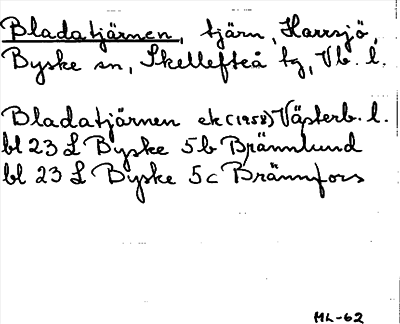 Bladatjärnen, tjärn, Harrsjö,
Byske sn, Skellefteå tg, Vb. l.
Bladatjärnen ek (1958) Västerb. l.
bl 23 L Byske 5b Brännlund
bl 23 L Byske 5c Brännfors
HL-62